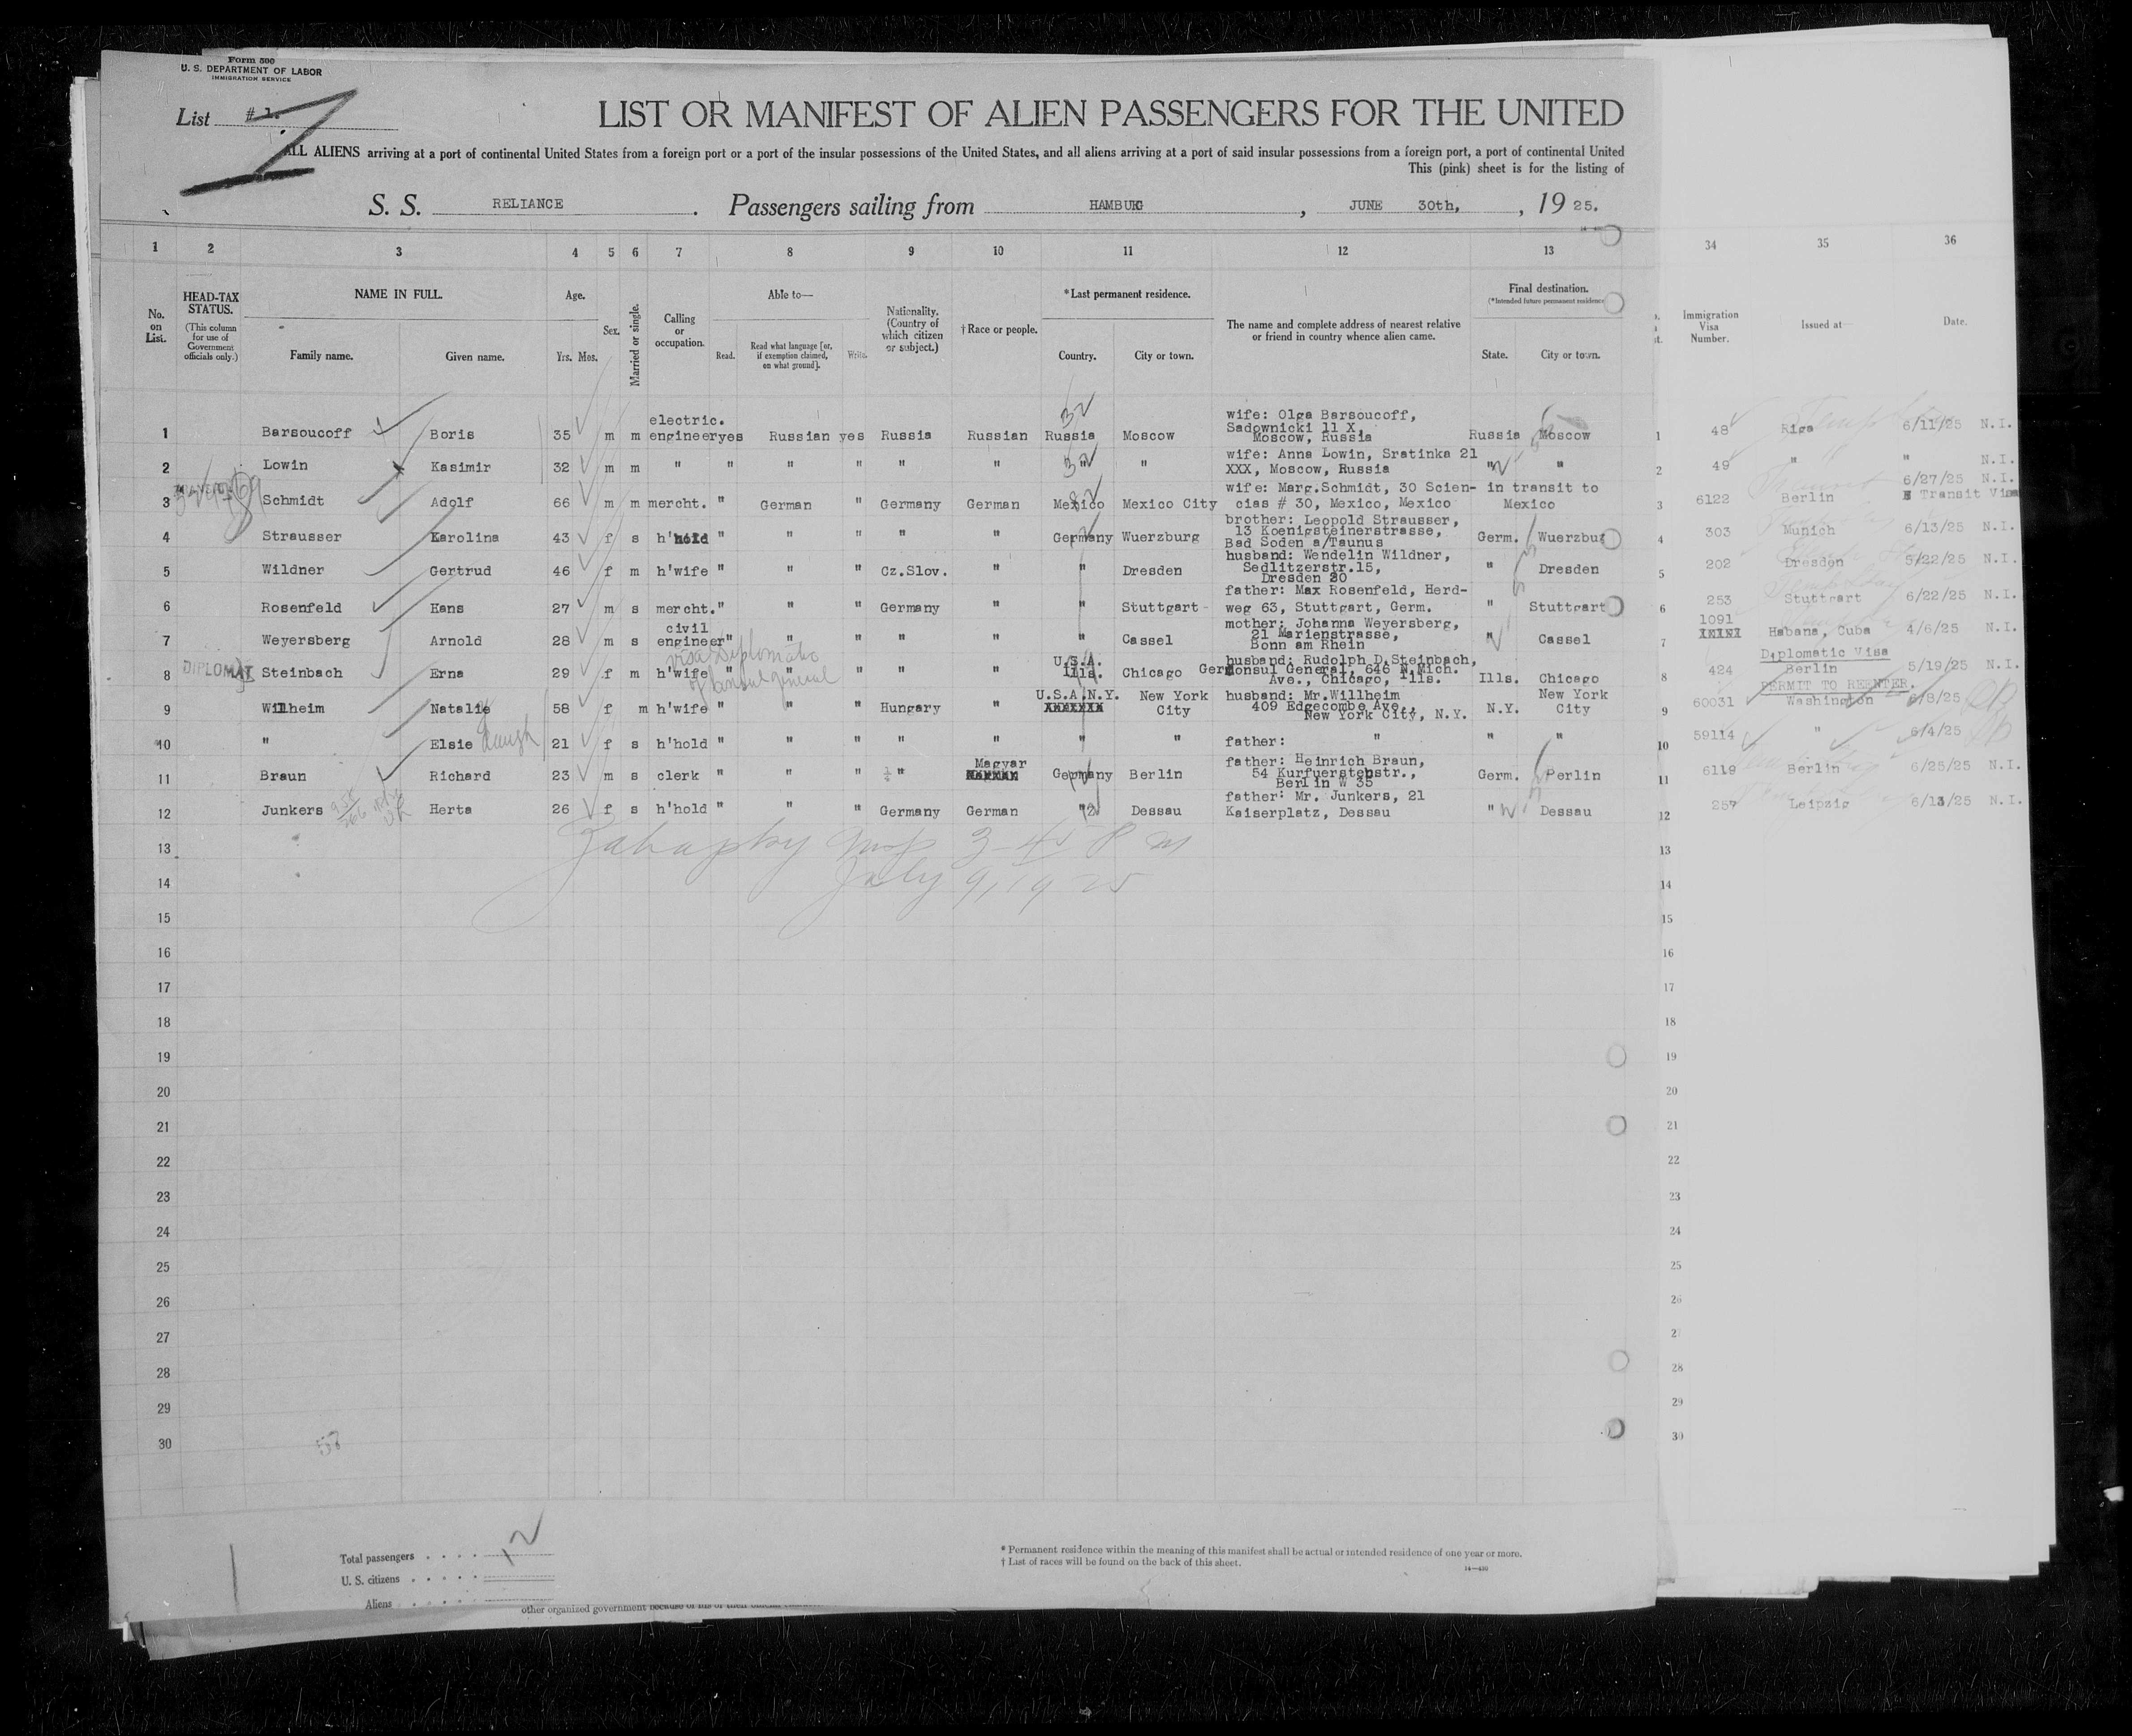 Form 500
U. S. DEPARTMENT OF LABOR
IMMIGRATION SERVICE
List # 1.
LIST OR MANIFEST OF ALIEN PASSENGERS FOR THE UNITED
ALL ALIENS arriving at a port of continental United States from a foreign port or a port of the insular possessions of the United States, and all aliens arriving at a port of said insular possessions from a foreign port, a port of continental United
This (pink) sheet is for the listing of
S. S. RELIANCE. Passengers sailing from HAMBURG, JUNE 30th, , 19 25.
1 2 3 4 5 6 7 8 9 10 11 12 13 34 35 36
No. on List.
HEAD-TAX STATUS.
(This column for use of Government officials only.)
NAME IN FULL.
Family name. Given name.
Age.
Yrs. Mos.
Sex.
Married or single.
Calling or occupation.
Able to—
Read. Read what language [or, if exemption claimed, on what ground]. Write.
Nationality. (Country of which citizen or subject.)
†Race or people.
*Last permanent residence.
Country. City or town.
The name and complete address of nearest relative or friend in country whence alien came.
Final destination.
(*Intended future permanent residence
State. City or town.
Immigration Visa Number.
Issued at—
Date.
1 Barsoucoff Boris 35 m m electric. engineer yes Russian yes Russia Russian Russia Moscow wife: Olga Barsoucoff, Sadownicki 11 X, Moscow, Russia Russia Moscow 1 48 Riga 6/11/25 N.I.
2 Lowin Kasimir 32 m m " " " " " " " " wife: Anna Lowin, Sratinka 21 XXX, Moscow, Russia " " 2 49 " " N.I.
3 Schmidt Adolf 66 m m mercht. " German " Germany German Mexico Mexico City wife: Marg.Schmidt, 30 Scien- cias # 30, Mexico, Mexico in transit to Mexico 3 6122 Berlin 6/27/25 N.I. Transit Visa
4 Strausser Karolina 43 f s h'hold " " " " " Germany Wuerzburg brother: Leopold Strausser, 13 Koenigsteinerstrasse, Bad Soden a/Taunus Germ. Wuerzbug 4 303 Munich 6/13/25 N.I.
5 Wildner Gertrud 46 f m h'wife " " " Cz.Slov. " " Dresden husband: Wendelin Wildner, Sedlitzerstr.15, Dresden 20 " Dresden 5 202 Dresden 5/22/25 N.I.
6 Rosenfeld Hans 27 m s mercht. " " " Germany " " Stuttgart father: Max Rosenfeld, Herd- weg 63, Stuttgart, Germ. " Stuttgart 6 253 Stuttgart 6/22/25 N.I.
7 Weyersberg Arnold 28 m s civil engineer " " " " " " Cassel mother: Johanna Weyersberg, 21 Marienstrasse, Bonn am Rhein " Cassel 7 1091 Habana, Cuba 4/6/25 N.I.
visa Diplomatic
of Consul General
8 DIPLOMAT Steinbach Erna 29 f m h'wife " " " " " U.S.A. Ills. Chicago husband: Rudolph D.Steinbach, Ger.Consul General, 646 N.Mich. Ave., Chicago, Ills. Ills. Chicago 8 424 Diplomatic Visa Berlin 5/19/25 N.I.
9 Wilheim Natalie 58 f m h'wife " " " Hungary " U.S.A.N.Y. New York City husband: Mr.Willheim 409 Edgecombe Ave., New York City, N.Y. N.Y. New York City 9 60031 PERMIT TO REENTER. Washington 6/8/25
10 " Elsie daugh 21 f s h'hold " " " " " " " father: " " " 10 59114 " 6/4/25
11 Braun Richard 23 m s clerk " " " " Magyar Germany Berlin father: Heinrich Braun, 54 Kurfuerstenstr., Berlin W 35 Germ. Perlin 11 6119 Berlin 6/25/25 N.I.
12 Junkers Herta 26 f s h'hold " " " Germany German " Dessau father: Mr. Junkers, 21 Kaiserplatz, Dessau " Dessau 12 257 Leipzig 6/13/25 N.I.
13 13
July 9, 1925
14 14
15 15
16 16
17 17
18 18
19 19
20 20
21 21
22 22
23 23
24 24
25 25
26 26
27 27
28 28
29 29
30 30
Total passengers . . . . 12
U. S. citizens . . . . .
Aliens . . . . .
* Permanent residence within the meaning of this manifest shall be actual or intended residence of one year or more.
† List of races will be found on the back of this sheet.
other organized government because of his or their official